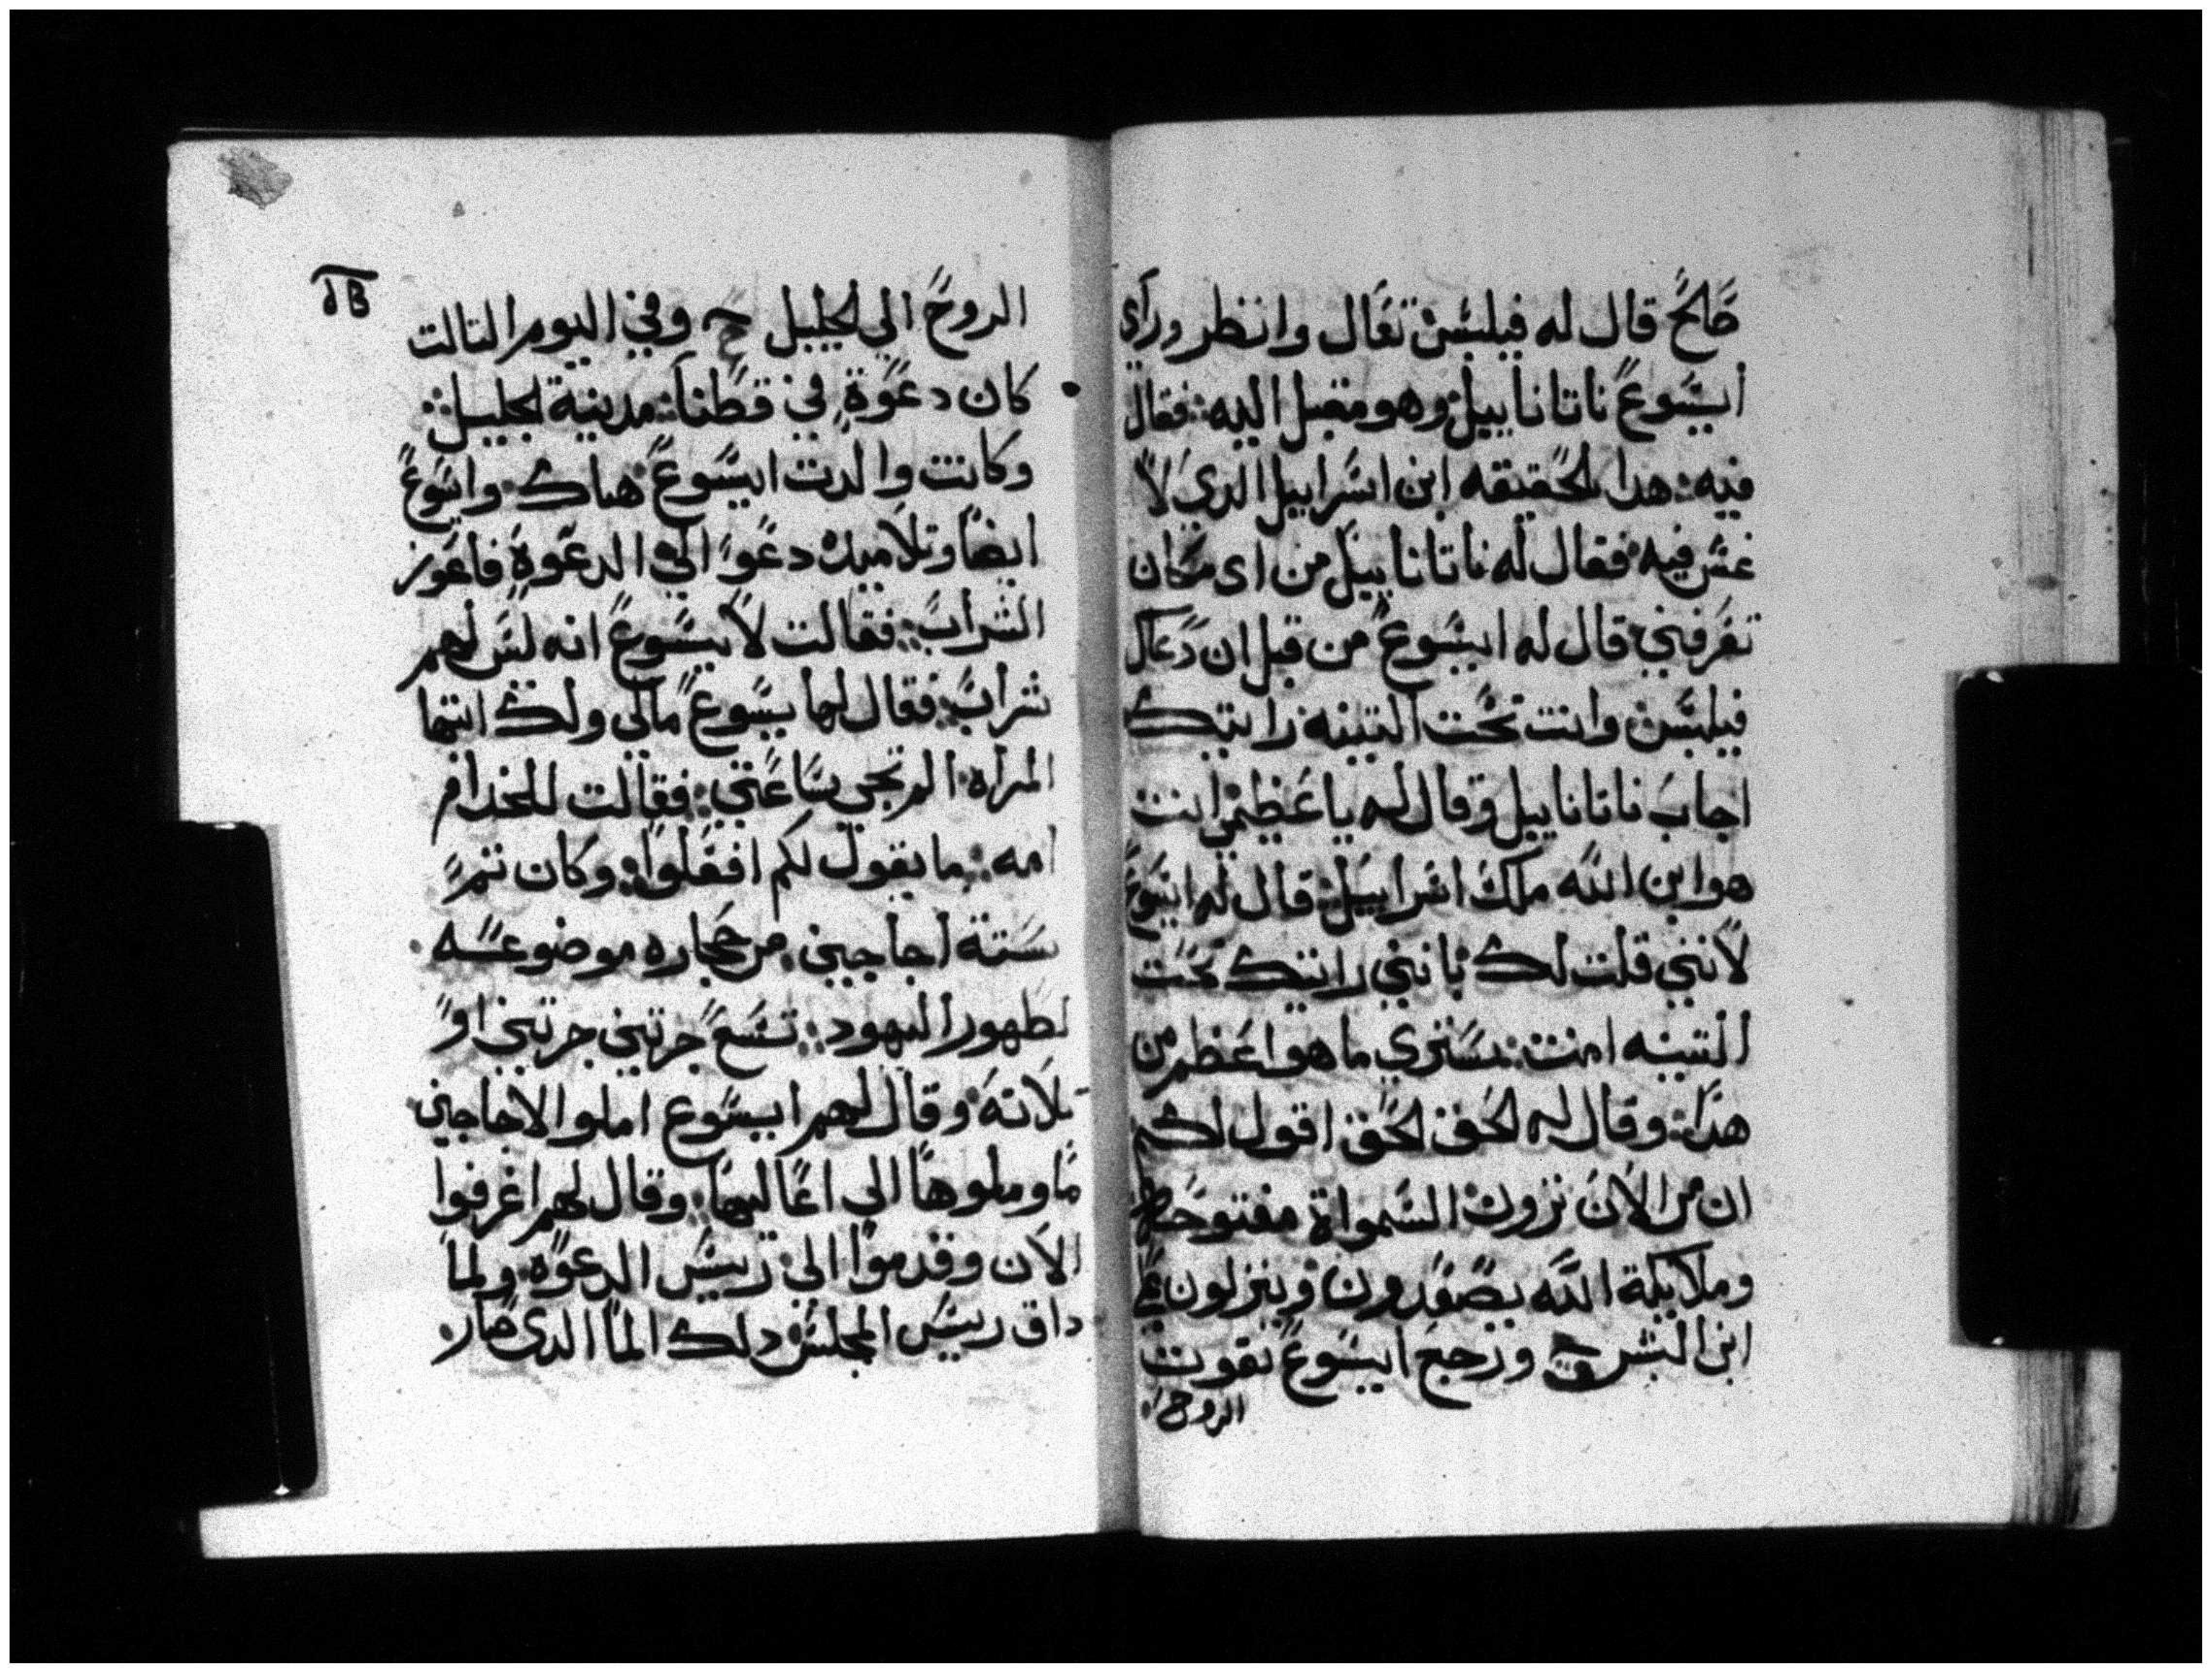 صالح قال له فيلبس تعال وانظر وراي
ايسوع ناتانابيل وهو مقبل اليه فقال
فيه هدا بالحقيقه ابن اسرابيل الدي لا
غش فيه فقال له ناتانابيل من اى مكان
تعرفني قال له ايسوع من قبل ان دعاك
فيلبس وانت تحت التينه رايتك
اجاب ناتانابيل وقال له يا عظيم انت
هو ابن الله ملك اسرابيل قال له ايسوع
لانني قلت لك بانني رايتك تحت
التينه امنت ستري ما هو اعظم من
هدا وقال له الحق الحق اقول لكم
ان من الان ترون السمواة مفتوحه
وملايكة الله يصعدون وينزلون علي
ابن البشر ورجع ايسوع بقوت
الروح
الروح الي الجليل وفي اليوم التالت
كان دعوة في قطنا مدينة الجليل
وكانت والدت ايسوع هناك وايسوع
ايضا وتلاميده دعوا الي الدعوة فاعوز
الشراب فقالت لايسوع انه ليس لهم
شراب فقال لها يسوع مالي ولك ايتها
المراه الم تجي ساعتي فقالت للخدام
امه ما يقول لكم افعلوا وكان تم
ستة اجاجين من حجاره موضوعه
لطهور اليهود تسع جرتين جرتين او
تلاته وقال لهم ايسوع املوا الاجاجين
ما وملوها الي اعاليها وقال لهم اغرفوا
الان وقدموا الى رييس الدعوه ولما
داق رييس المجلس دلك الما الدى صار